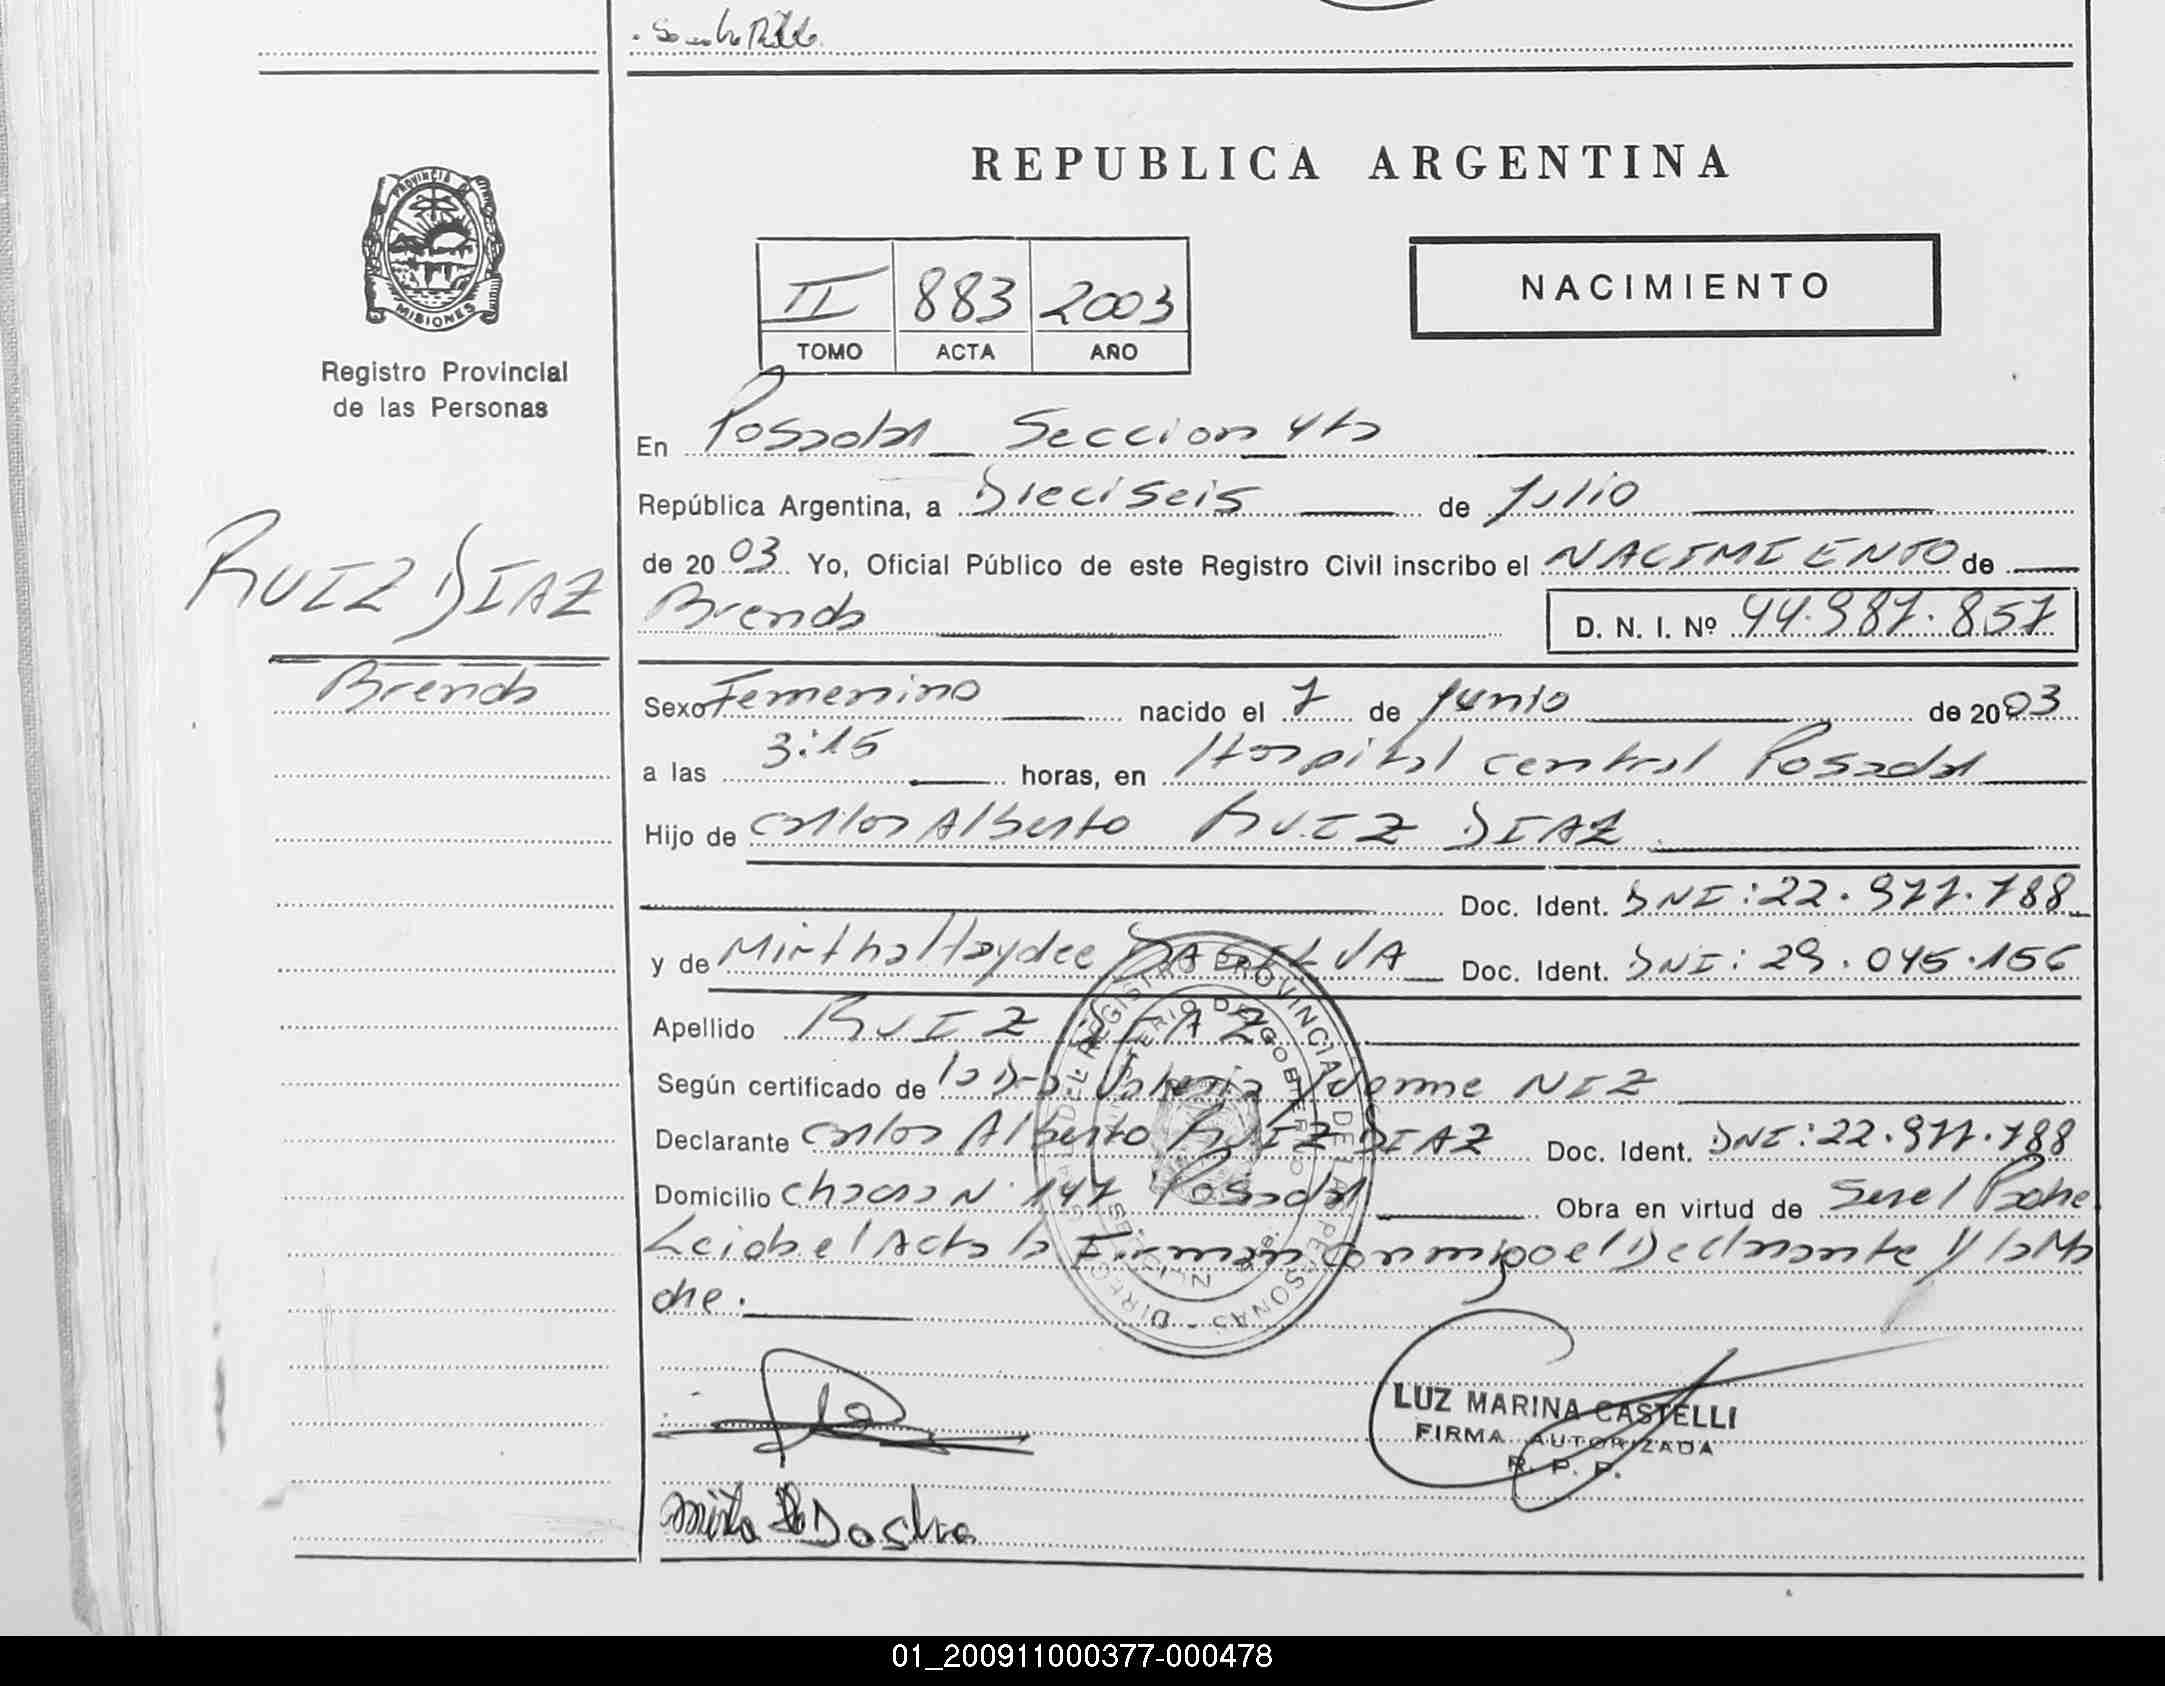 PROVINCIA DE
MISIONES
Registro Provincial
de las Personas
RUIZ DIAZ
Brenda
REPUBLICA ARGENTINA
II 883 2003
TOMO ACTA AÑO
NACIMIENTO
En Posadas Seccion 4ta
República Argentina, a Dieciseis de Julio
de 2003 Yo, Oficial Público de este Registro Civil inscribo el NACIMIENTO de
Brenda D. N. I. Nº 44.987.857
Sexo Femenino nacido el 7 de Junio de 2003
a las 3:15 horas, en Hospital central Posadas
Hijo de Carlos Alberto RUIZ DIAZ
Doc. Ident. DNI: 22.977.788
y de Mirtha Haydee DA SILVA Doc. Ident. DNI: 29.045.156
Apellido RUIZ DIAZ
Según certificado de la Dra Valeria Ivonne NIZ
Declarante Carlos Alberto RUIZ DIAZ Doc. Ident. DNI: 22.977.788
Domicilio Chacra Nº 147 Posadas Obra en virtud de Ser el Padre
Leida el Acta la Firman conmigo el Declarante y la Ma
dre.
LUZ MARINA CASTELLI
FIRMA AUTORIZADA
R. P. P.
Mirta H Da Silva
01_200911000377-000478